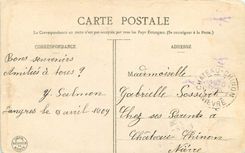 CARTE POSTALE
La Correspondance au recto n'est pas acceptée par tous les Pays Étrangers. (Se renseigner à la Poste.)
CORRESPONDANCE
ADRESSE
Bons souvenirs
Amitiés à tous
Y. Salmon
Langres le avril 1909
Mademoiselle
Gabrielle
Chez ses Parents à
Château Chinon
Nièvre